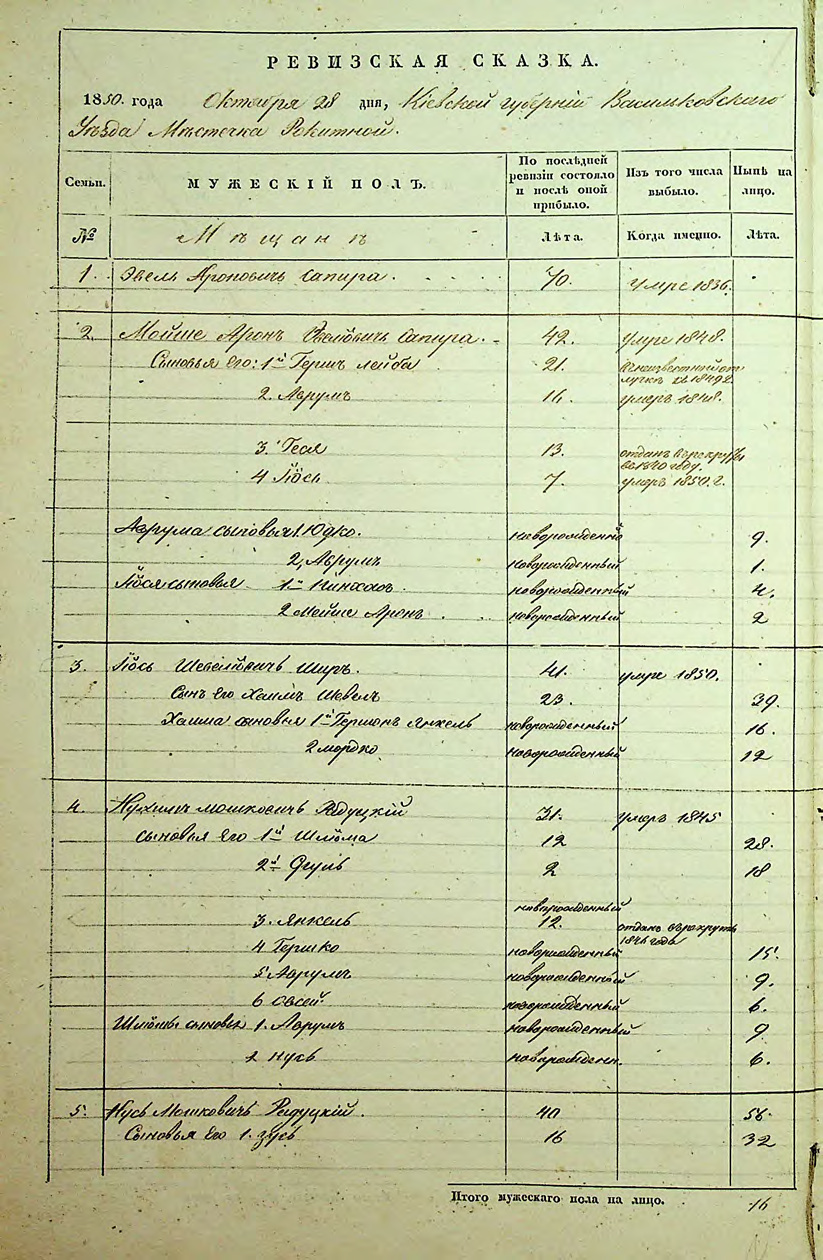 РЕВИЗСКАЯ СКАЗКА.
1850. года Октября 28 дня, Кіевской губерніи Васильковскаго
Уѣзда Мѣстечка Рокитной.
Семьи. МУЖЕСКІЙ ПОЛЪ. По послѣдней ревизіи состояло и послѣ оной прибыло. Изъ того числа выбыло. Нынѣ на лицо.
№ Мѣщанъ Лѣта. Когда именно. Лѣта.
1. Эвель Ароновичъ Сапира. 70. Умре 1836.
2. Мойше Аронъ Эвелювичъ Сапира. 42. Умре 1848.
Сыновья его: 1й Гершъ Лейба 21. въ неизвестной от
лучкѣ съ 1849 г.
2. Аврумъ 16. умеръ 1848.
3. Геся 13. отданъ въ рекруты
въ 1840 году.
4 Іось 7. умеръ 1850. г.
Аврума сыновья 1. Юдко. новорожденный 9.
2, Аврумъ новорожденный 1.
Іося сыновья 1й Пинхасъ новорожденный 4.
2 Мойше Аронъ новорожденный 2
3. Іось Шевелювичъ Ширъ. 41. умре 1850.
Сынъ его Хаимъ Шевель 23. 39.
Хаима сыновья 1й Гершонъ Янкель новорожденный 16.
2 Мордко новорожденный 12
4. Нухимъ Мошковичъ Радуцкій 31. умеръ 1845
Сыновья его 1й Шлёма 12 28.
2й 2 18
3. Янкель новорожденный
12. отданъ въ рекруты
1846 года
4 Гершко новорожденный 15.
5 Аврумъ новорожденный 9.
6 Овсей новорожденный 6.
Шлёмы сыновья 1. Аврумъ новорожденный 9
2 Нусь новорожденн. 6.
5. Нусь Мошковичъ Радуцкій. 40 56.
Сыновья его 1. Зусь 16 32
Итого мужескаго пола на лицо. 16